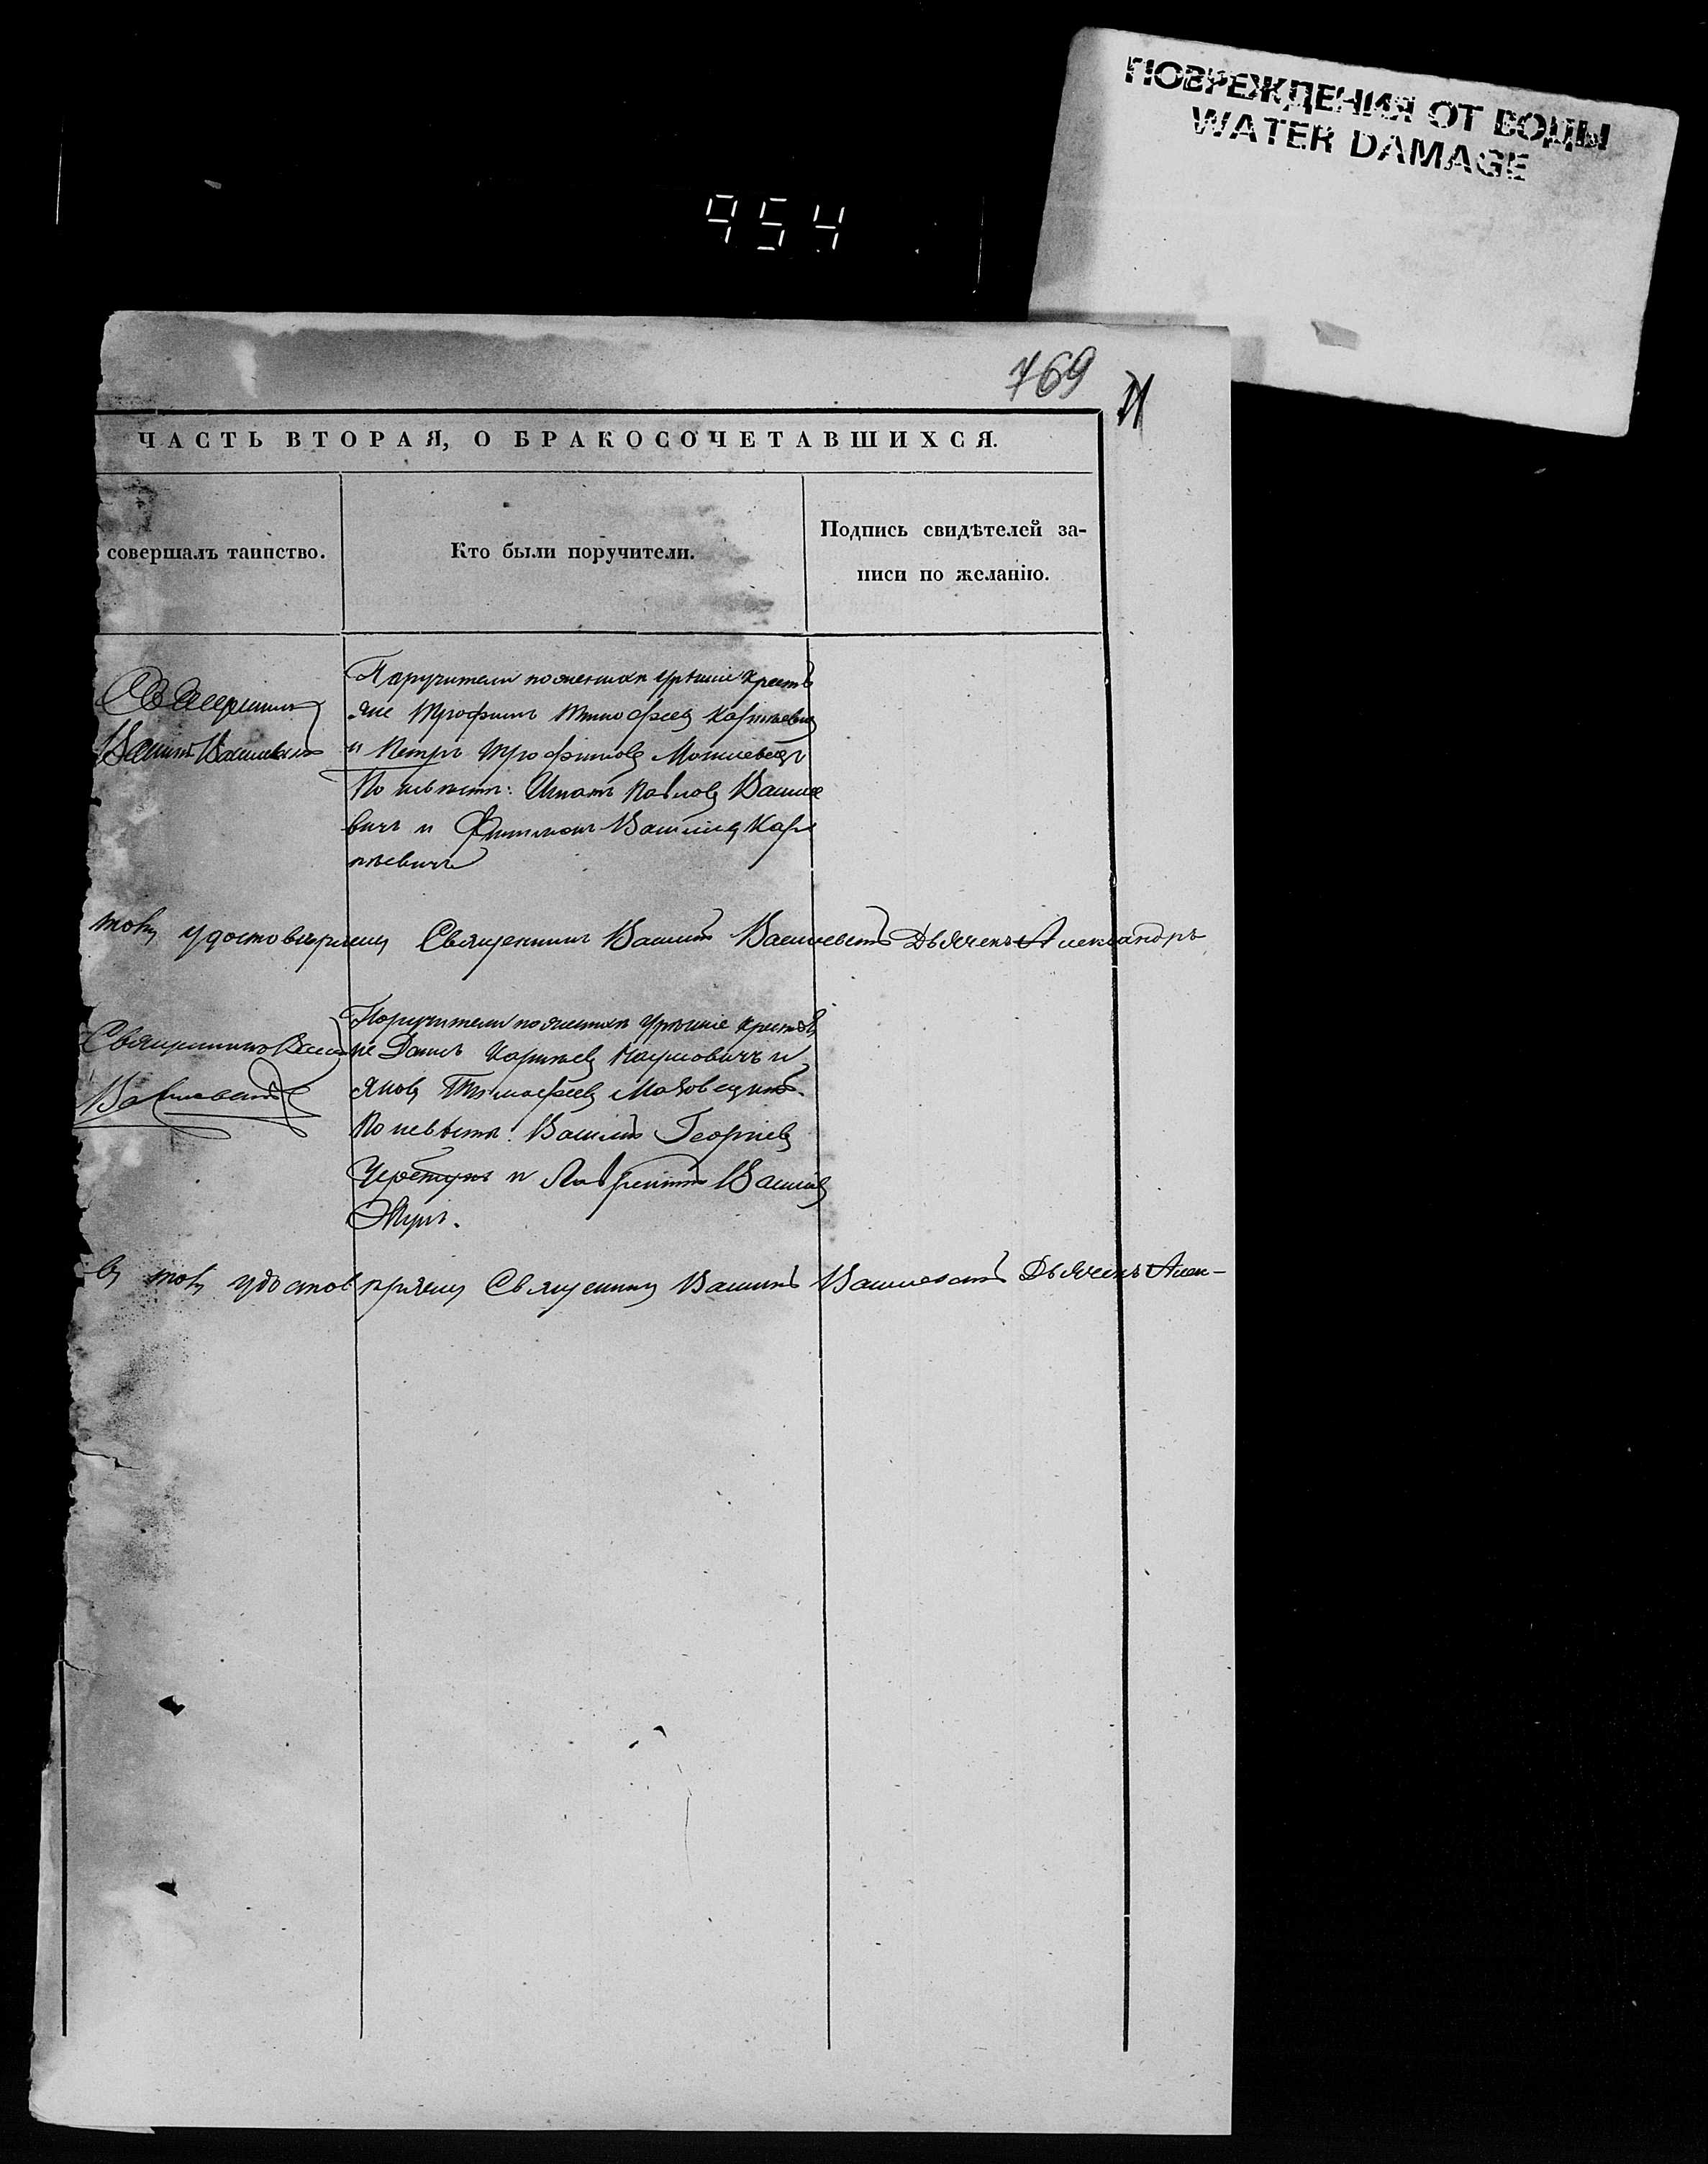 ПОВРЕЖДЕНИЯ ОТ ВОДЫ
WATER DAMAGE
954
769
ЧАСТЬ ВТОРАЯ, О БРАКОСОЧЕТАВШИХСЯ.
совершалъ таинство.
Кто были поручители.
Подпись свидѣтелей за-
писи по желанію.
Священникъ
Василій Василевскій
Паручители по женихѣ крестья
не Трофимъ Тимофеев Карпѣевич
и Петръ Трофимовъ
По невѣстѣ: Игнатъ Павловъ Василе
вичъ и Филимонъ Василіев Кар
пѣевичъ
томъ удостовѣряемъ Священникъ Василій Василевскій Дьячекъ Александръ
Поручители по женихѣ крестья
Священникъ Васи
не Данилъ Карпѣевъ Наумовичъ и
Яковъ Тимофеевъ
Василевскій
По невѣстѣ: Василій Георгіевъ
и Лаврентій Василіевъ
въ томъ удостовѣряемъ Священникъ Василій Василевскій Дьячекъ Алек-